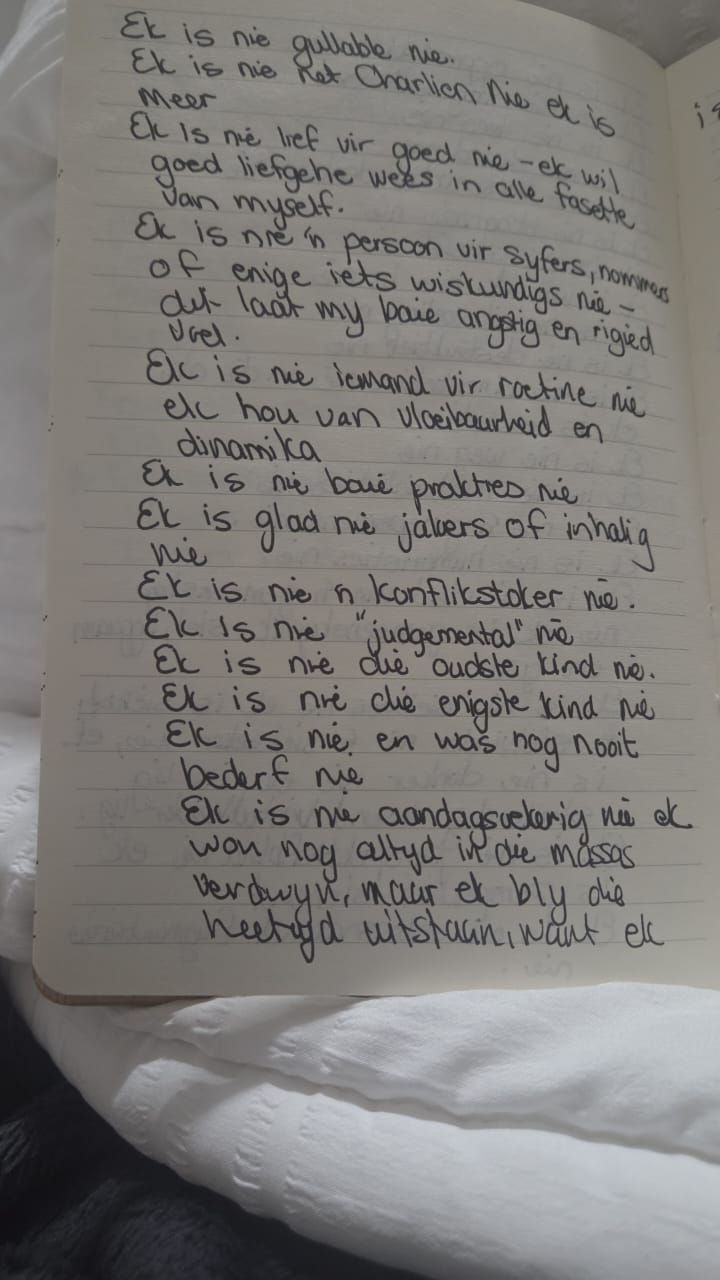 Ek is nie gullable nie.
Ek is nie net Charlien nie ek is
meer
Ek is nie lief vir goed nie - ek wil
goed liefgehe wees in alle fasette
van myself.
Ek is nie 'n persoon vir syfers, nommers
of enige iets wiskundigs nie -
dit laat my baie angstig en rigied
voel.
Ek is nie iemand vir roetine nie
ek hou van vloeibaarheid en
dinamika
Ek is nie baie prakties nie
Ek is glad nie jaloers of inhalig
nie
Ek is nie 'n konflikstoker nie.
Ek is nie "judgemental" nie
Ek is nie die oudste kind nie.
Ek is nie die enigste kind nie
Ek is nie en was nog nooit
bederf nie
Ek is nie aandagsoekerig nie ek
wou nog altyd in die massas
verdwyn, maar ek bly die
heeltyd uitstaan, want ek